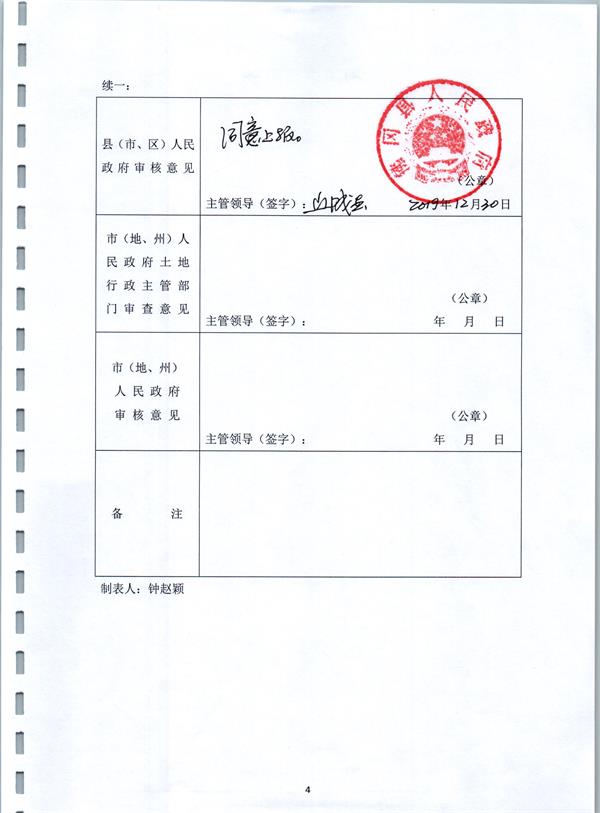 续一：
佛冈县人民政府
县（市、区）人民
政府审核意见
同意上报。
（公章）
主管领导（签字）：
2019年12月30日
市（地、州）人
民政府土地
行政主管部
门审查意见
（公章）
主管领导（签字）：
年 月 日
市（地、州）
人民政府
审核意见
（公章）
主管领导（签字）：
年 月 日
备 注
制表人：钟赵颖
4